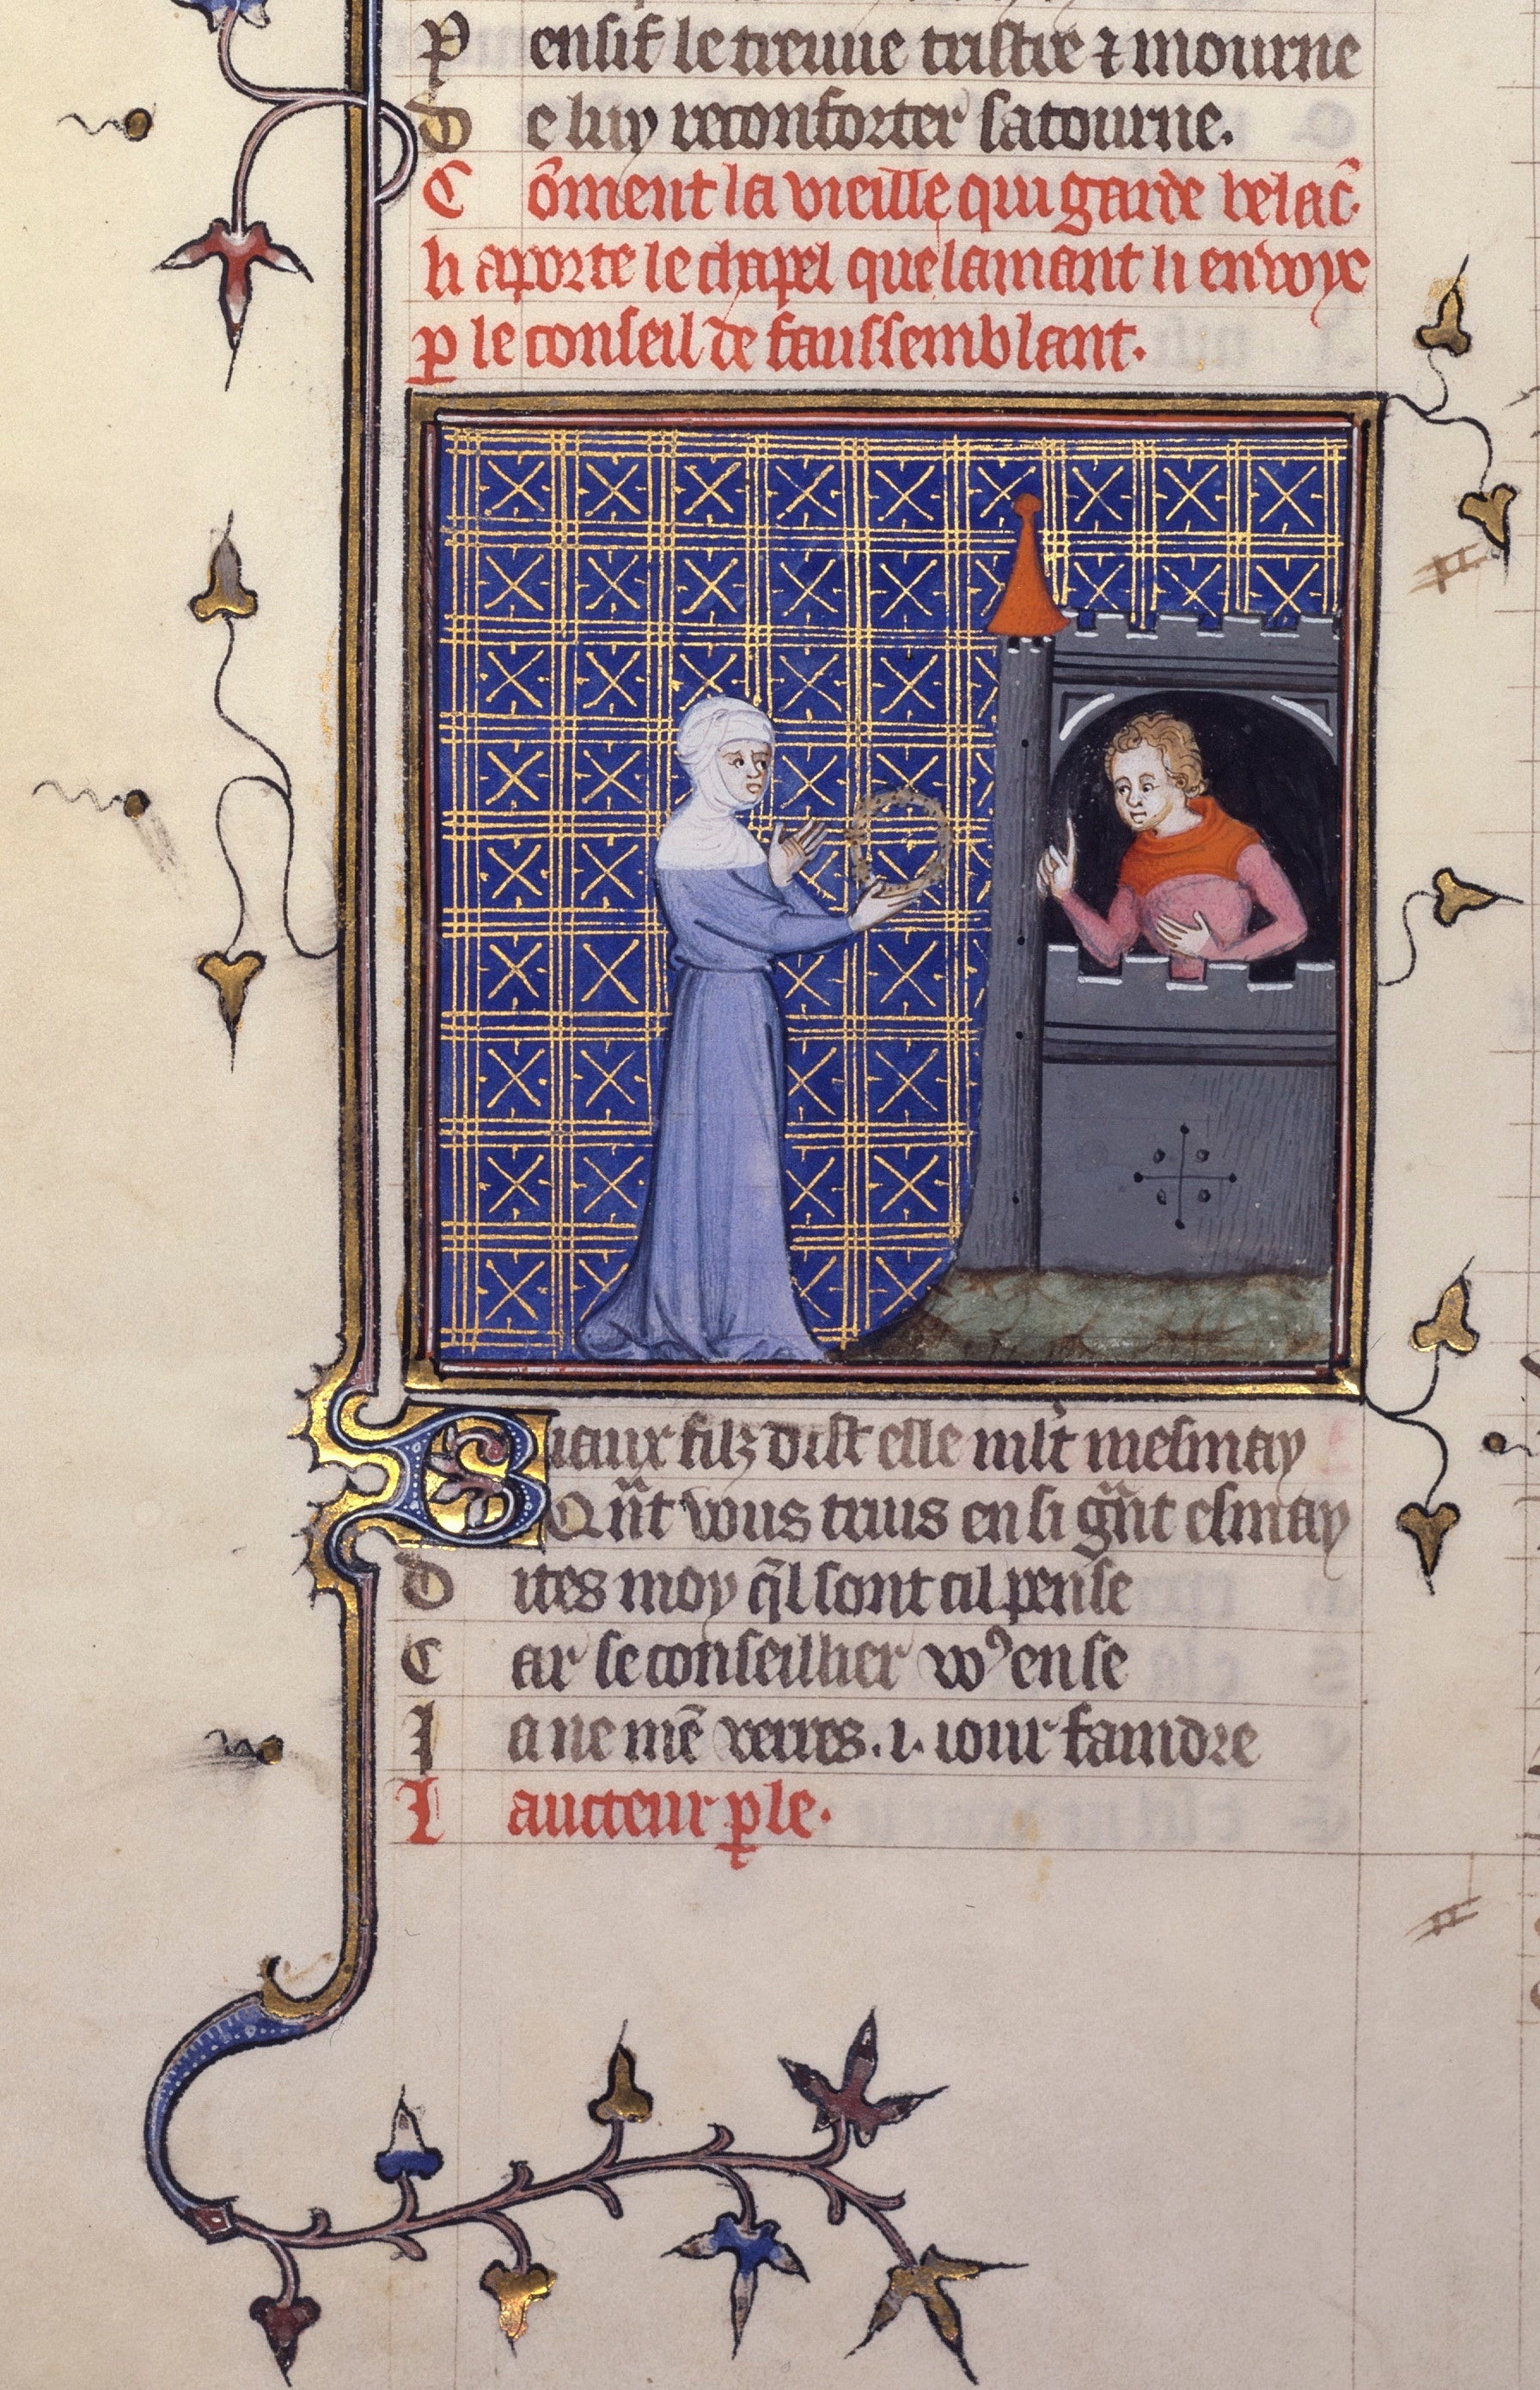 Pensif le treuue tristre ⁊ mourne
De luy reconforter satourne.
Cõment la vieille qui garde belac̃
li aporte le chapel que lamant li enuoye
ꝑ le conseil de faussemblant.
Biaux filz dist elle mlt̃ mesmay
Qũt vous truis en si gñt esmay
Dites moy q̃l sont cil pense
Car se conseillier voꝰ en se
Ia ne mẽ verres .i. iour faindre
Laucteur ꝑle.